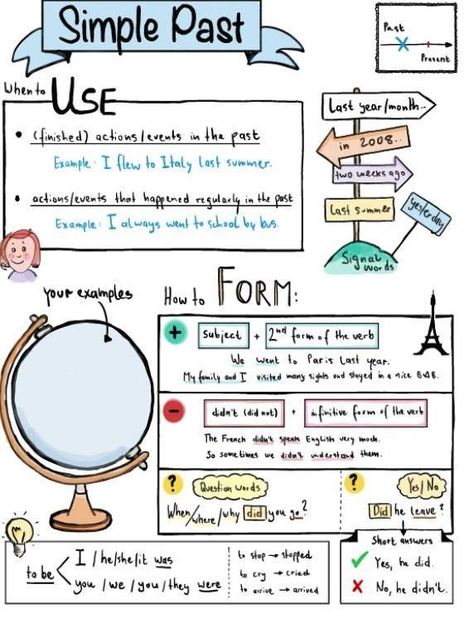 Simple Past
Past
Present
When to USE
• (finished) actions/events in the past
Example: I flew to Italy last summer.
• actions/events that happened regularly in the past
Example: I always went to school by bus.
Last year/month...
in 2008...
two weeks ago
last summer
yesterday
Signal words
your examples
How to FORM:
+ subject + 2nd form of the verb
We went to Paris last year.
My family and I visited many sights and stayed in a nice B&B.
- didn't (did not) + infinitive form of the verb
The French didn't speak English very much.
So sometimes we didn't understand them.
? Question words
When/where/why did you go?
? Yes/No
Did he leave?
Short answers
✓ Yes, he did.
✗ No, he didn't.
to be
I/he/she/it was
you/we/you/they were
to stop → stopped
to cry → cried
to arrive → arrived